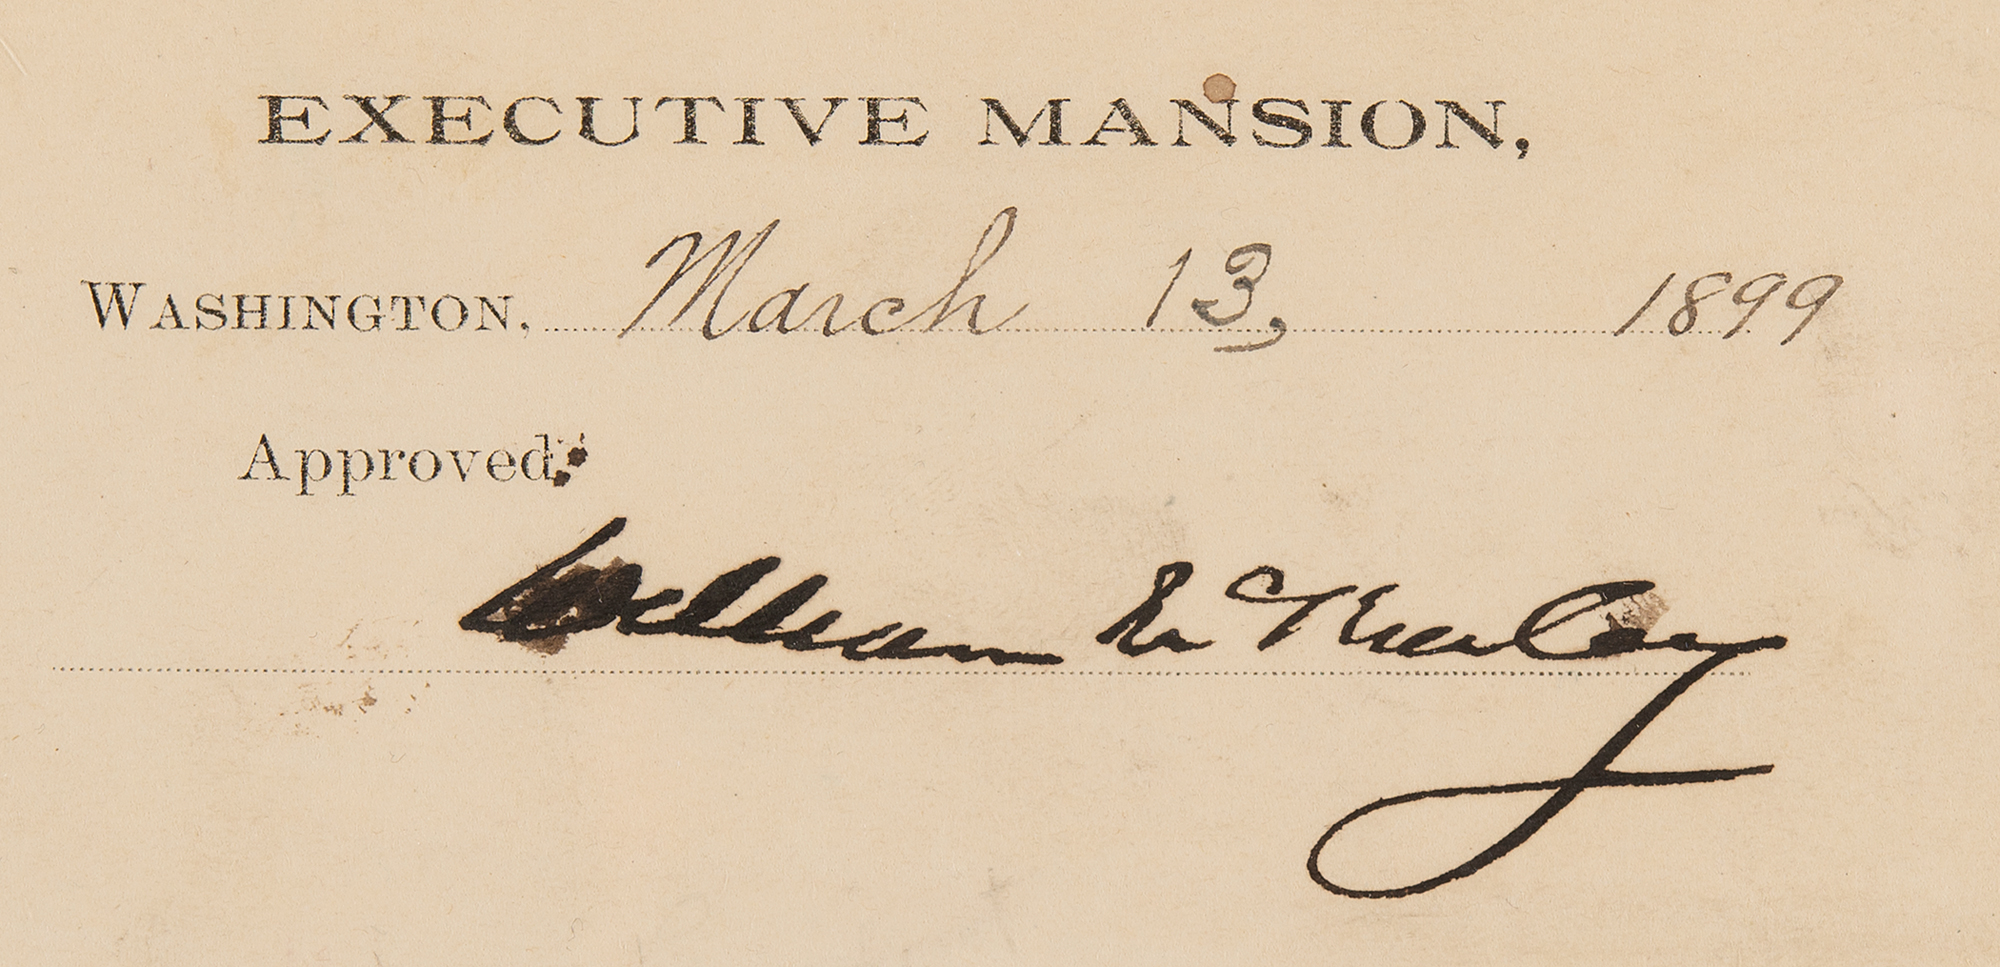 EXECUTIVE MANSION,
WASHINGTON, March 13, 1899
Approved:
William McKinley